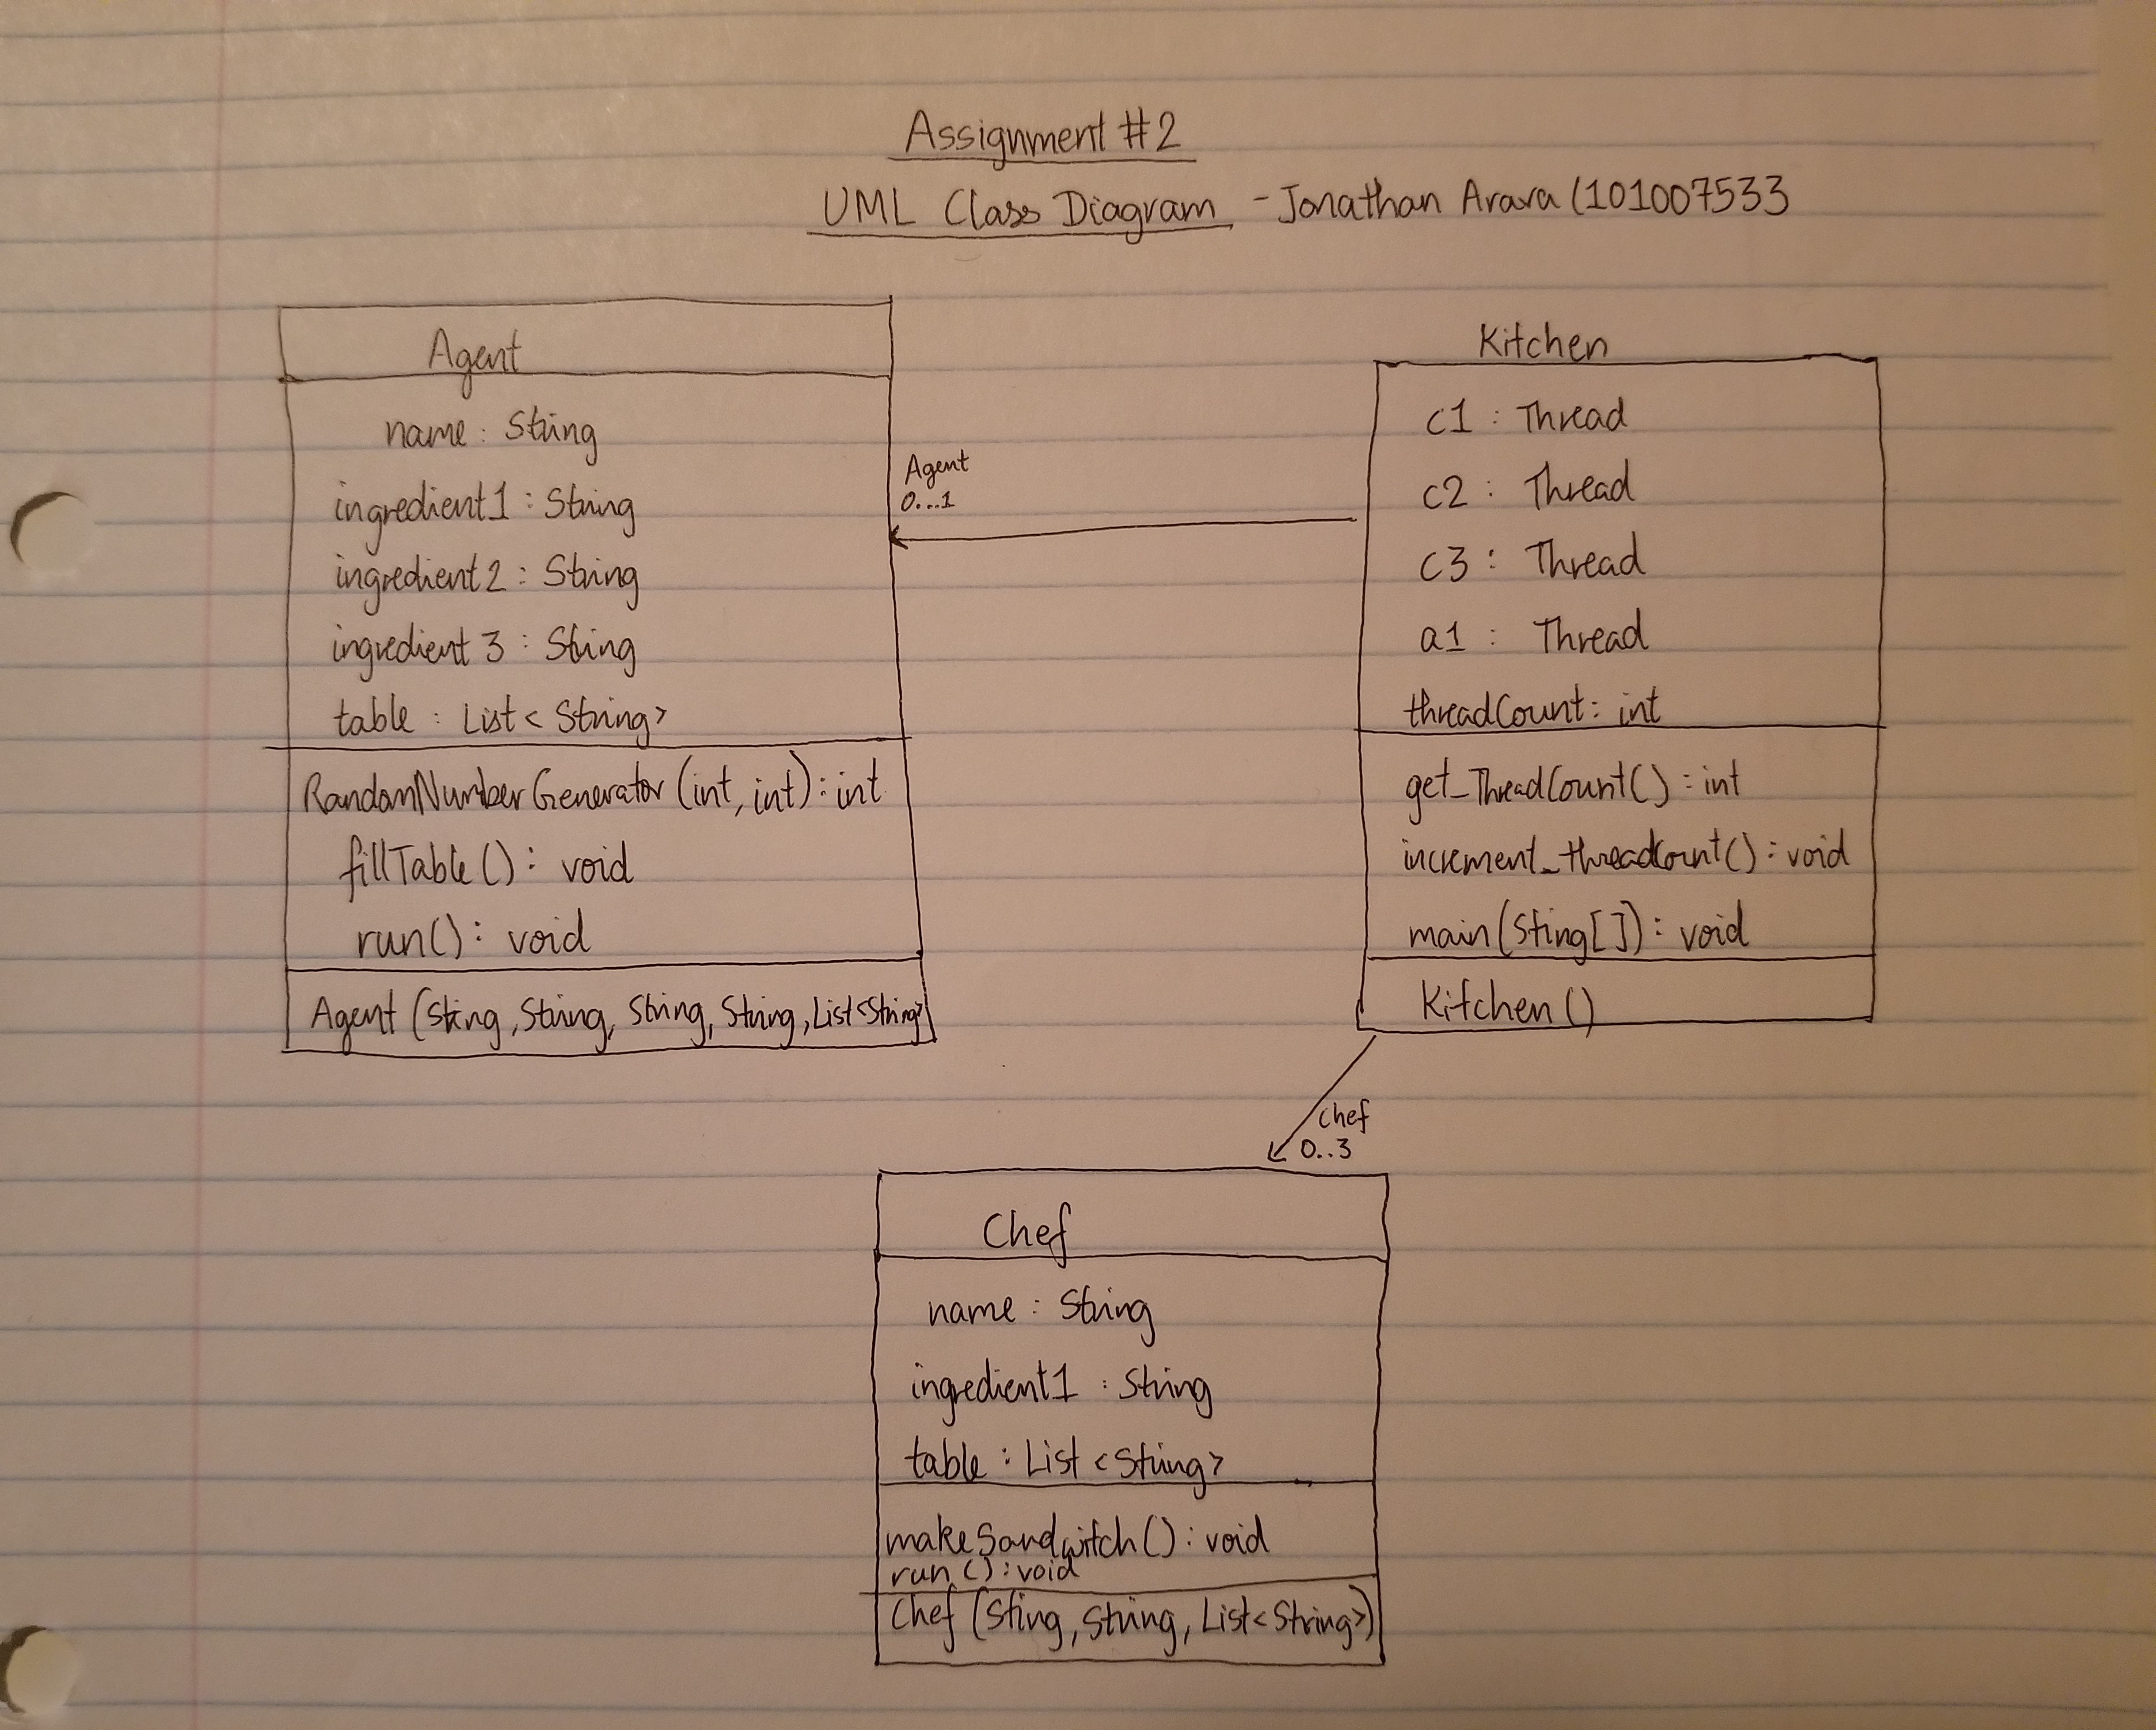 Assignment #2
UML Class Diagram - Jonathan Arava (101007533
Agent
name : String
ingredient1 : String
ingredient2 : String
ingredient 3 : String
table : List < String>
RandomNumberGenerator (int, int) : int
fillTable () : void
run() : void
Agent (String, String, String, String, List<String>)
Agent
0...1
Kitchen
c1 : Thread
c2 : Thread
c3 : Thread
a1 : Thread
threadCount : int
get_ThreadCount() : int
increment_threadCount() : void
main(Sting[]) : void
Kitchen ()
Chef
0..3
Chef
name : String
ingredient1 : String
table : List <String>
makeSandwitch () : void
run () : void
Chef (Sting, String, List<String>)